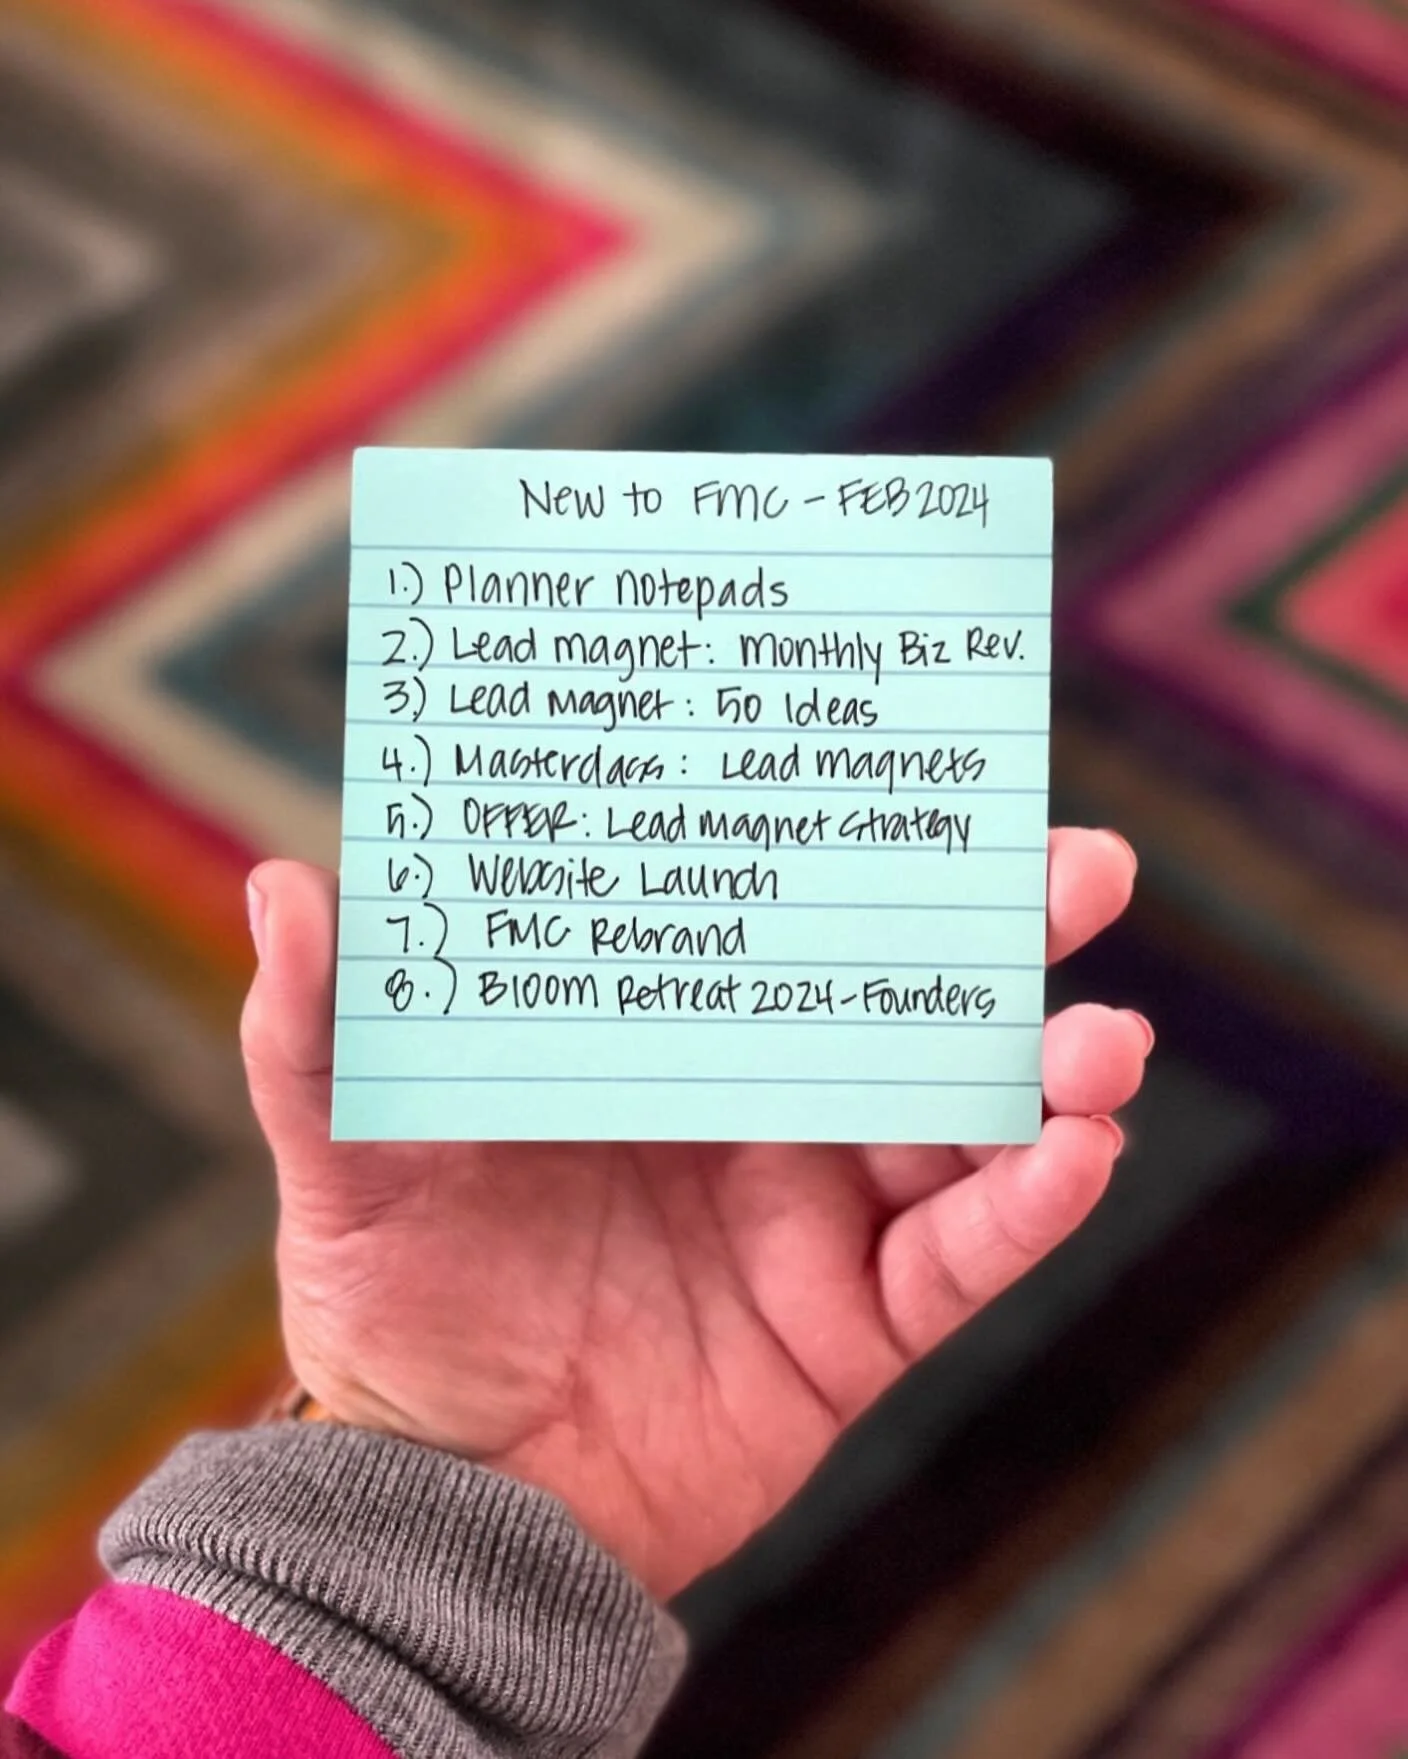 New to FMC - FEB 2024
1.) Planner notepads
2.) Lead magnet: Monthly Biz Rev.
3.) Lead Magnet: 50 Ideas
4.) Masterclass: Lead magnets
5.) OFFER: Lead magnet strategy
6.) Website Launch
7.) FMC Rebrand
8.) Bloom Retreat 2024-Founders